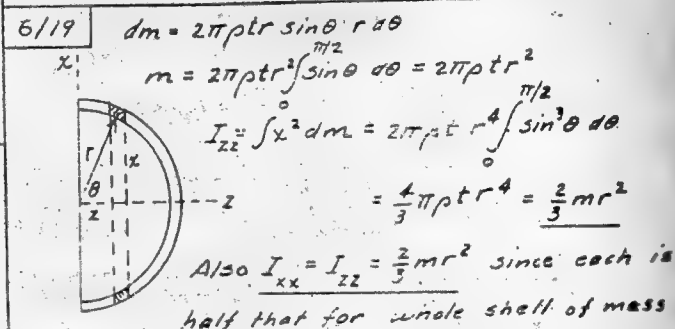 6/19 dm = 2πρtr sinθ r dθ
x
m = 2πρtr² ∫₀^(π/2) sinθ dθ = 2πρtr²
I_zz = ∫x² dm = 2πρt r⁴ ∫₀^(π/2) sin³θ dθ
r
x
θ
z
z
= 4/3 πρtr⁴ = 2/3 mr²
Also I_xx = I_zz = 2/3 mr² since each is
half that for whole shell of mass